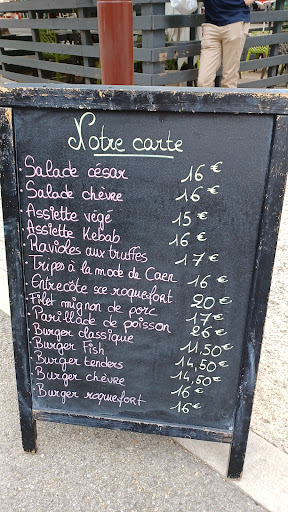 Notre carte
Salade césar 16 €
Salade chèvre 16 €
Assiette végé 15 €
Assiette Kebab 16 €
Ravioles aux truffes 17 €
Tripes à la mode de Caen 16 €
Entrecôte sce roquefort 20 €
Filet mignon de porc 17 €
Parillade de poisson 26 €
Burger classique 11,50 €
Burger Fish 14,50 €
Burger tenders 14,50 €
Burger chèvre 16 €
Burger roquefort 16 €